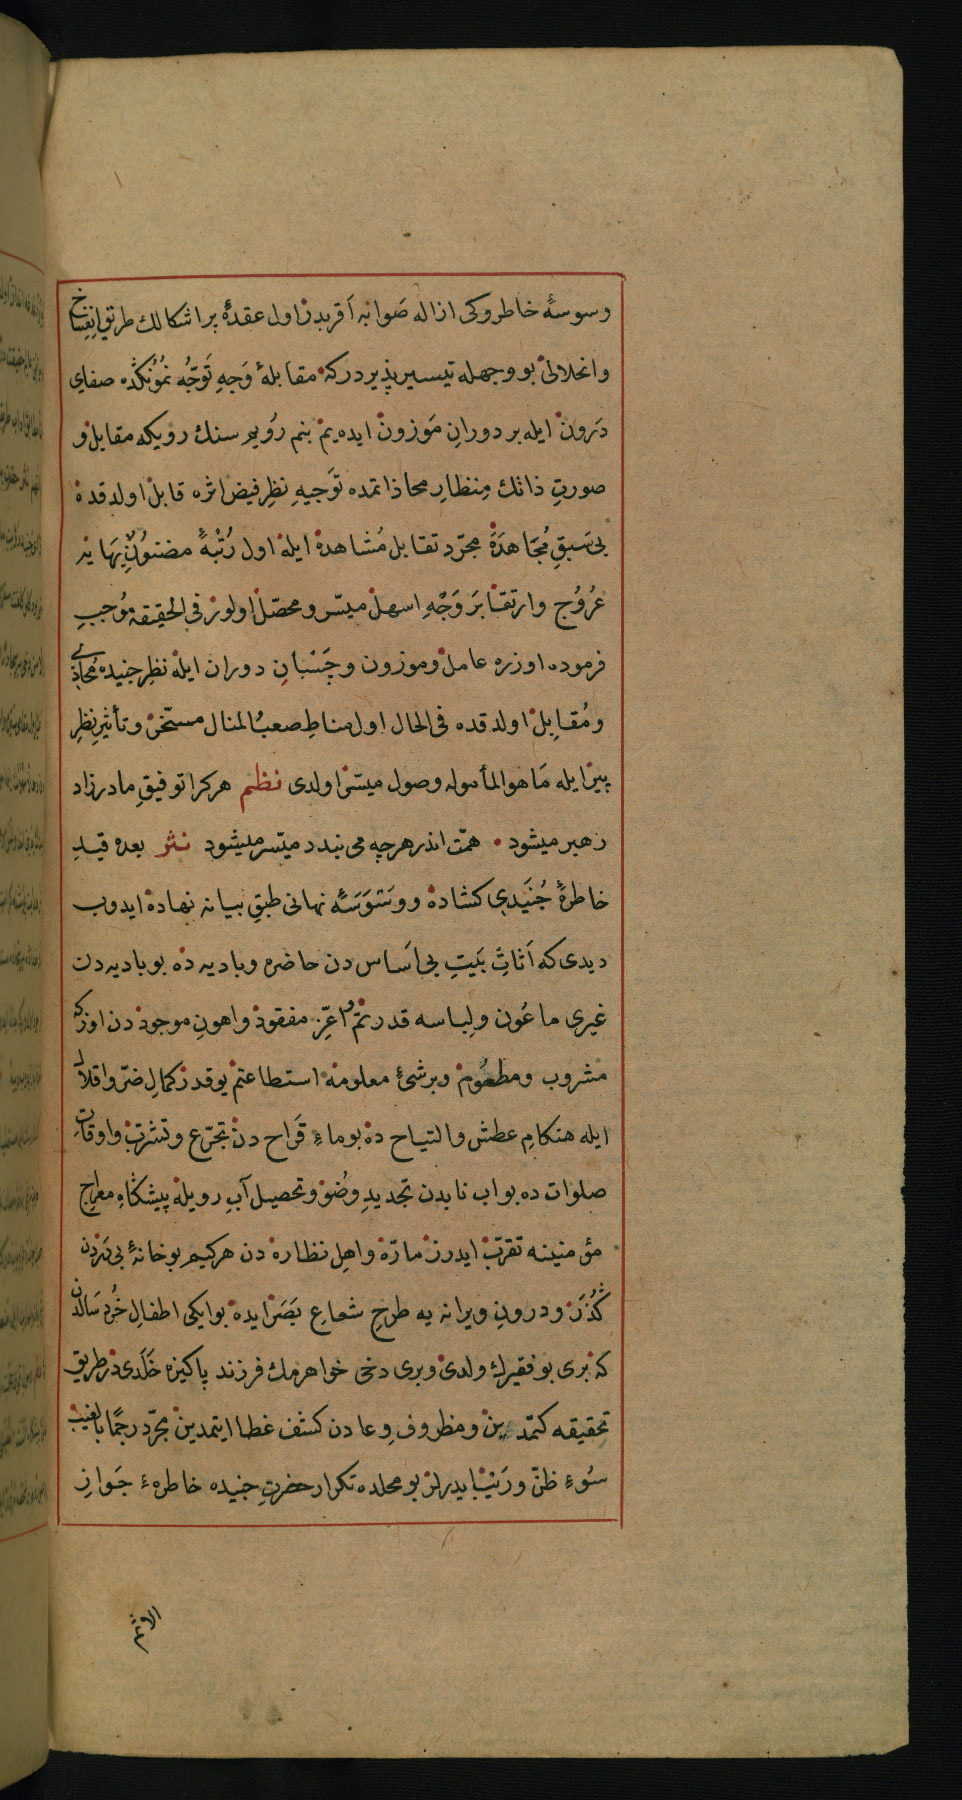 وسوسهٔ خاطروكى ازاله صوابه اقربدر اول عقدهٔ پر اشكالك طريق انفساخ
وانحلالى بو وجهله تيسير پذيردركه مقابلهٔ وَجهِ تَوَجُّه نُمُونكده صفاى
دَرون ايله بر دورانِ مَوزون ايده يم بنم رُويم سنك رويكه مقابل و
صورتِ ذاتك مِنظارِ محاذاتمده تَوجيهِ نظرِ فيض اثره قابل اولدقده
بى سَبقِ مُجَاهَدَهٔ مجرّد تقابل مُشاهده ايله اول رُتْبهٔ مضنوُنِ بهايه
عرُوُج وارتقا بَر وَجْهِ اسهل ميسّر ومحصّل اولور فى الحقيقه مُوجبِ
فرموده اوزره عامل وموزون وچَسْبانِ دوران ايله نظرِ جنيده مُحاذىِ
ومُقابِل اولدقده فى الحال اول مناطِ صعبُ المنال مسخّر وتأثيرِ نظرِ
پير ايله مَاهوالمأموله وصول ميسّر اولدى نظم هركرا توفيقِ مادرزاد
رهبر ميشود • همّت اندر هرچه مى بندد ميسّر ميشود نثر بعده قيدِ
خاطرهٔ جُنَيدى كشاده ووَسْوَسَهٔ نهانى طبقِ بيانه نهاده ايدوب
ديدى كه اَثاثِ بَيتِ بى اَساس دن حاضره وباديه ده بو باديه دن
غيرى ماعُون ولباسه قدرتم اعزِّ مفقود واهونِ موجود دن اوزكه
مشروب ومطعُوم وبرشىءِ معلومه استطاعتم يوقدر كمالِ ضرّ واقلالْ
ايله هنكامِ عطش والتياح ده بو ماءِ قَراح دن تجرّع وتشرّب واوقاتِ
صلوات ده بو اب نابدن تجديدِ وضُو وتحصيل آبِ رويله پيشكاهِ معراج
مؤمنينه تقرّب ايدرز مارّه واهلِ نظاره دن هركيم بو خانهٔ بى دَردن
كُذَر ودرونِ ويرانه يه طرحِ شعاعِ بَصَر ايده بو ايكى اطفالِ خُرد سَالدن
كه برى بو فقيرك ولدى وبرى دخى خواهرمك فرزند پاكيزه خَلَدى در طريقِ
تحقيقه كتمدين ومظروف وِعادن كشف غطا ايتمدين مجرّد رجمًا بالغيب
سُوءِ ظنّ ورَيْب ايدرلر بو محلده تكرار حضرتِ جنيده خاطرهء جَوازِ